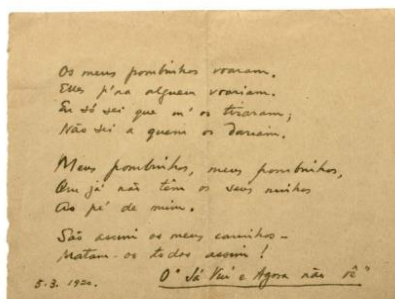 Os meus pombinhos voaram.
Elles p'ra alguem voariam.
Eu só sei que m' os tiraram;
Não sei a quem os dariam.
Meus pombinhos, meus pombinhos,
Que já não têm os seus ninhos
Ao pé de mim.
São assim os meus carinhos –
Matam-os todos assim!
5.3.1920.
O "Já Viu e Agora não vê"